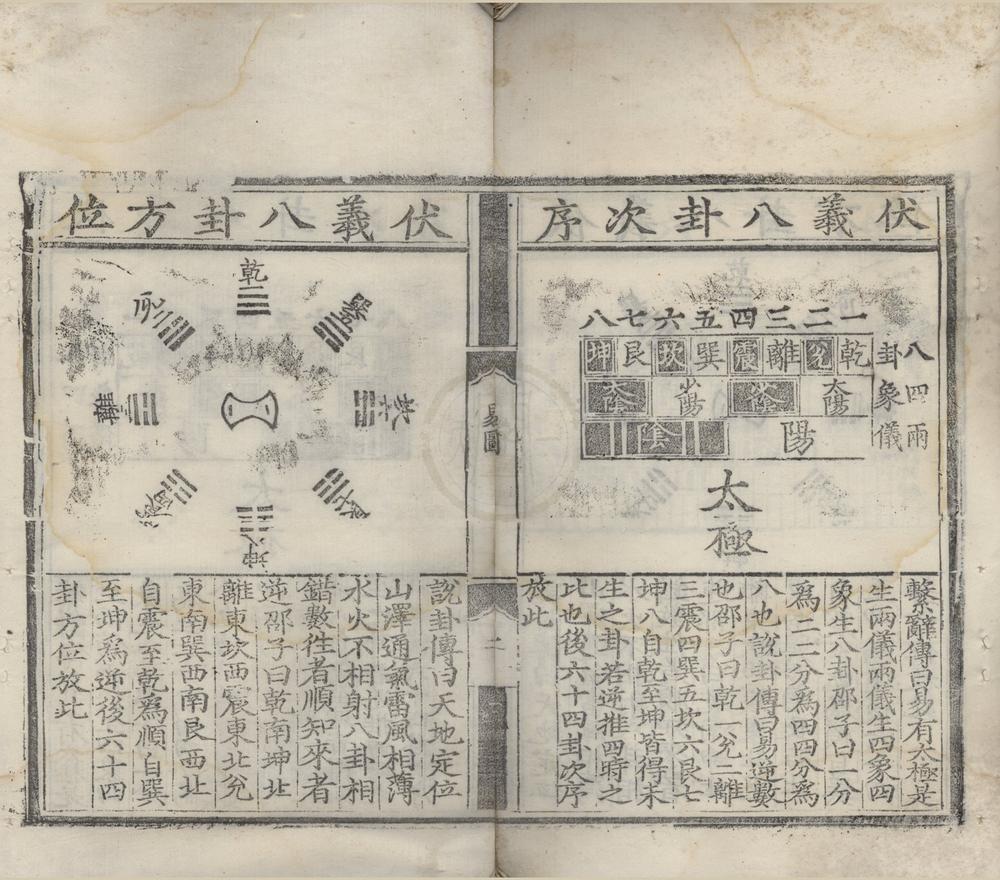 伏羲八卦次序
一二三四五六七八
八卦
四象
兩儀
乾兌離震巽坎艮坤
太陽少陰少陽太陰
陽陰
太極
繫辭傳曰易有太極是
生兩儀兩儀生四象四
象生八卦邵子曰一分
爲二二分爲四四分爲
八也說卦傳曰易逆數
也邵子曰乾一兌二離
三震四巽五坎六艮七
坤八自乾至坤皆得未
生之卦若逆推四時之
比也後六十四卦次序
放此
易圖
二
伏羲八卦方位
乾
兌
離
震
巽
坎
艮
坤
說卦傳曰天地定位
山澤通氣雷風相薄
水火不相射八卦相
錯數往者順知來者
逆邵子曰乾南坤北
離東坎西震東北兌
東南巽西南艮西北
自震至乾爲順自巽
至坤爲逆後六十四
卦方位放此